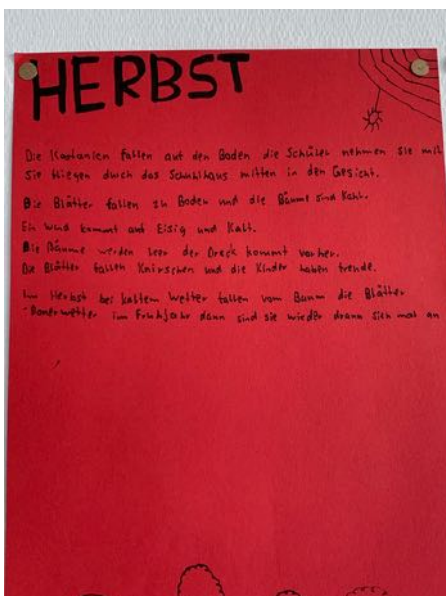 HERBST
Die Kastanien fallen auf den Boden die Schüler nehmen sie mit
Sie fliegen durch das Schuhlhaus mitten in den Gesicht.
Die Blätter fallen zu Boden und die Bäume sind Kahl.
Ein wind kommt auf Eisig und Kalt.
Die Bäume werden leer der Dreck kommt vorher.
Die Blätter fallen Knirschen und die Kinder haben freude.
Im Herbst bei kaltem Wetter fallen vom Baum die Blätter
Donerwetter im Frühjahr dann sind sie wieder drann sich mal an